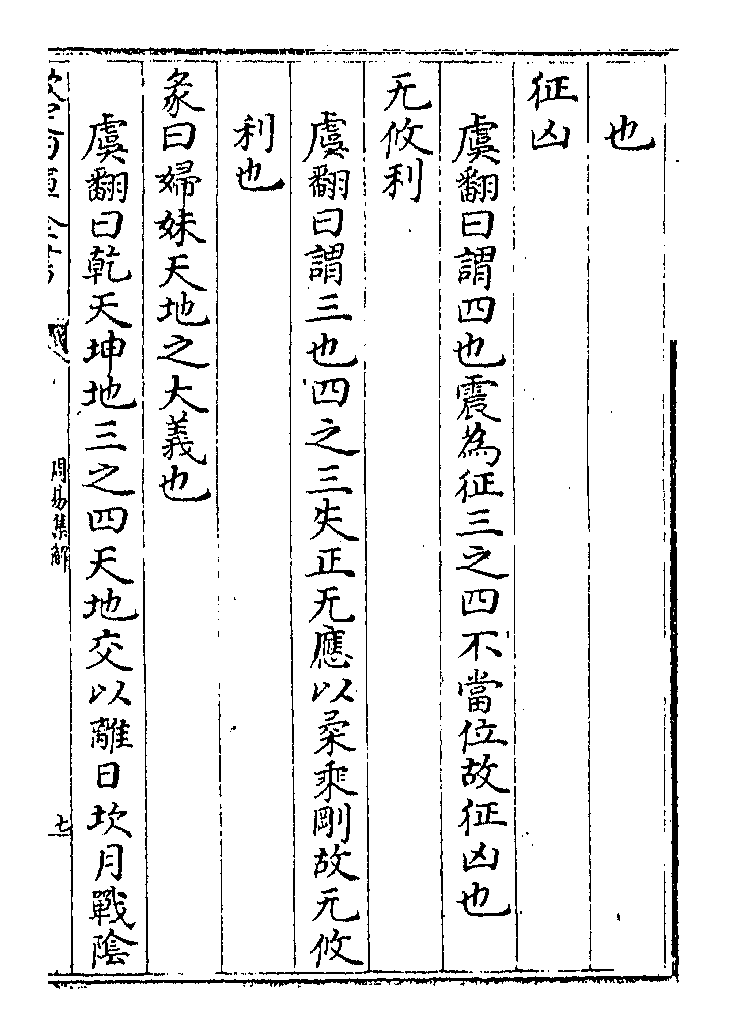 也
征凶
虞翻曰謂四也震為征三之四不當位故征凶也
无攸利
虞翻曰謂三也四之三失正无應以柔乘剛故无攸
利也
彖曰婦妹天地之大義也
虞翻曰乾天坤地三之四天地交以離日坎月戰陰
欽定四庫全書
周易集解
七